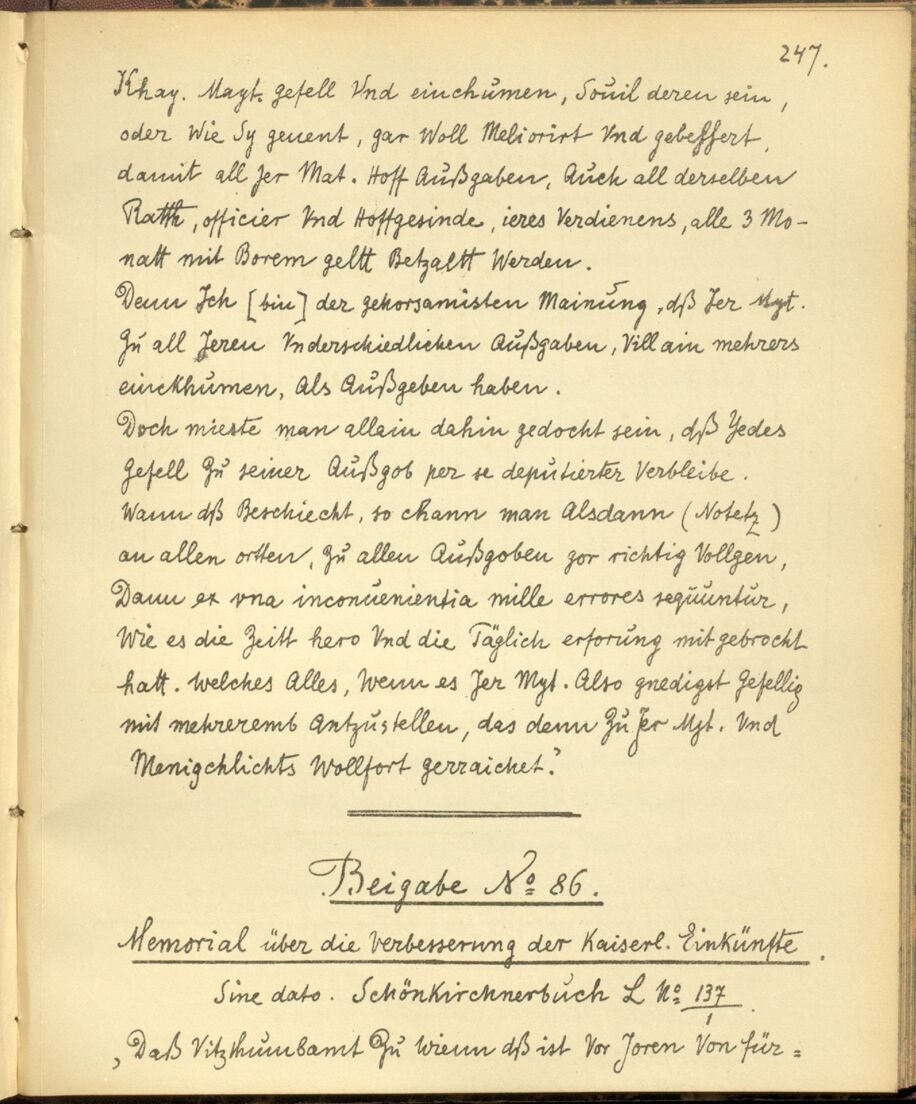 247.
Khay. Mayt. gefell Vnd einchumen, Souil deren sein,
oder Wie Sy genent, gar Woll Meliorirt Vnd gebessert,
damit all Jer Mat. Hoff Außgaben, Auch all derselben
Rätth, officier Vnd Hoffgesinde, ieres Verdienens, alle 3 Mo-
natt mit Borem geltt Betzaltt Werden.
Denn Ich [bin] der gehorsamisten Mainung, dß Jer Myt.
Zu all Jeren Vnderschiedlichen Außgaben, Vill ain mehrers
einckhumen, Als Außgeben haben.
Doch mieste man allain dahin gedocht sein, dß Yedes
Gefell Zu seiner Außgob per se deputierter Verbleibe.
Wann dß Beschiecht, so chann man Alsdann (Notetz)
an allen ortten, Zu allen Außgoben gor richtig Vollgen,
Dann ex vna inconuenientia mille errores sequuntur,
Wie es die Zeitt hero Vnd die Täglich erforung mit gebrocht
hatt. Welches Alles, Wenn es Jer Myt. Also gnedigst Gefellig
mit mehreremb Antzustellen, das denn Zu Jer Myt. Vnd
Menigchlichts Wollfort gerraichet."
Beigabe No 86.
Memorial über die Verbesserung der Kaiserl. Einkünfte.
Sine dato. Schönkirchnerbuch L No 137/1.
„Daß Vitzthumbamt Zu Wienn dß ist Vor Joren Von für=